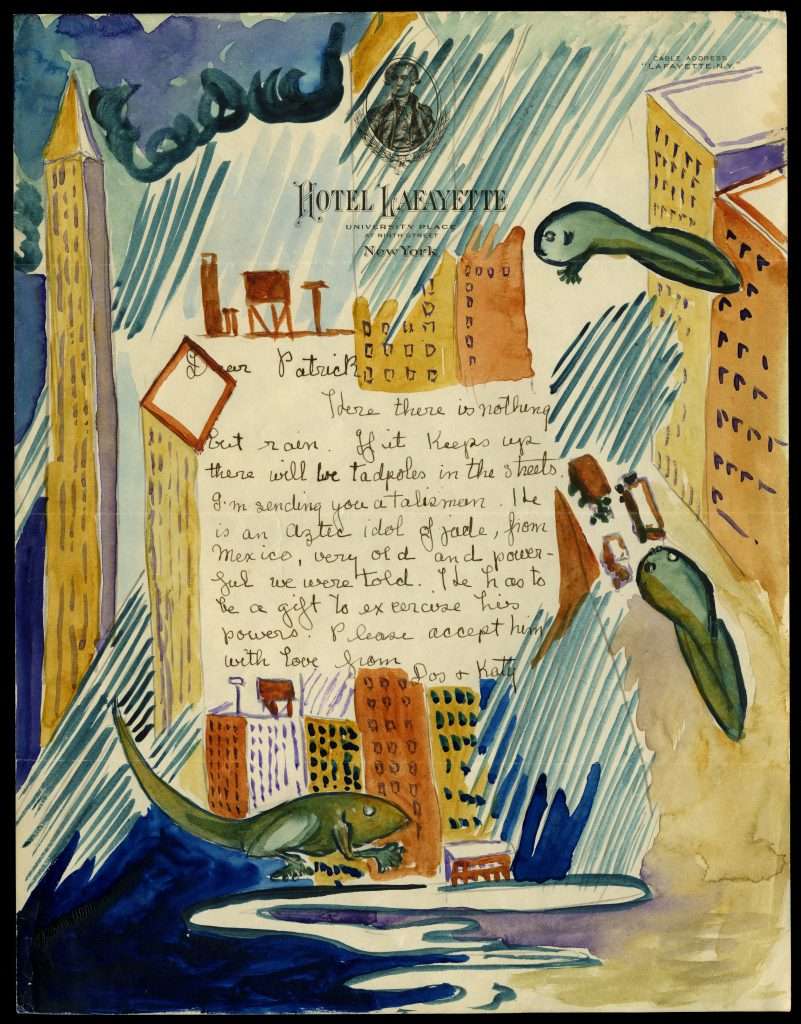 CABLE ADDRESS
"LAFAYETTE, N.Y."
HOTEL LAFAYETTE
UNIVERSITY PLACE
AT NINTH STREET
New York
Dear Patrick
Here there is nothing
but rain. If it keeps up
there will be tadpoles in the streets.
I'm sending you a talisman. He
is an aztec idol of jade, from
Mexico, very old and power-
ful we were told. He has to
be a gift to excercise his
powers. Please accept him
with love from Dos & Katy